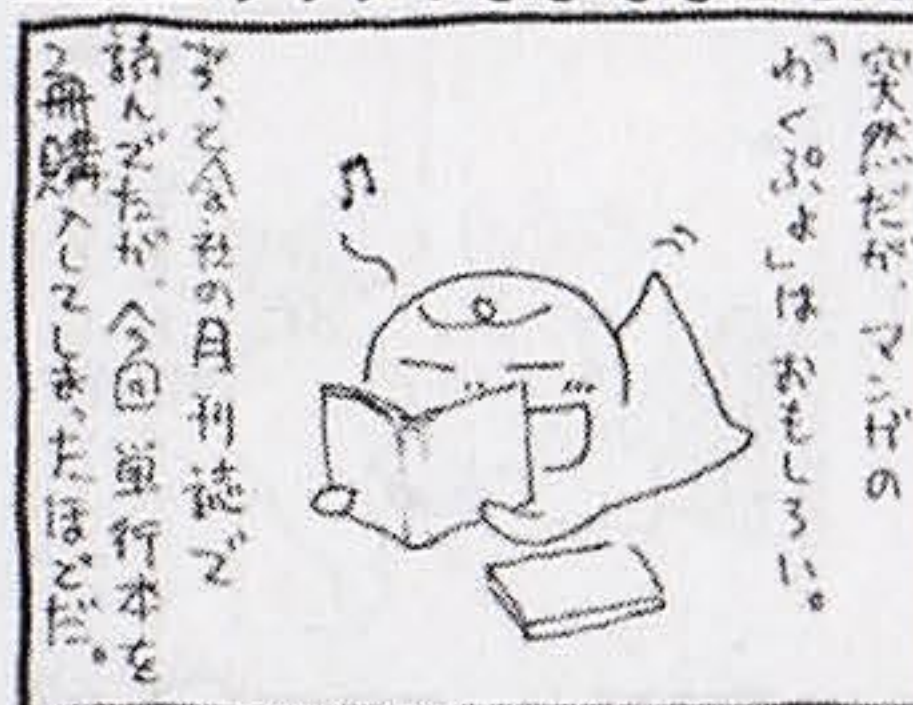 突然だが、マンガの
「わくぷよ」はおもしろい。
ずっと会社の月刊誌で
読んでたが、今回単行本を
2冊購入してしまったほどだ。